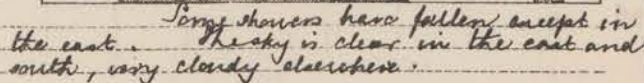 Some showers have fallen except in
the east. The sky is clear in the east and
south, very cloudy elsewhere.